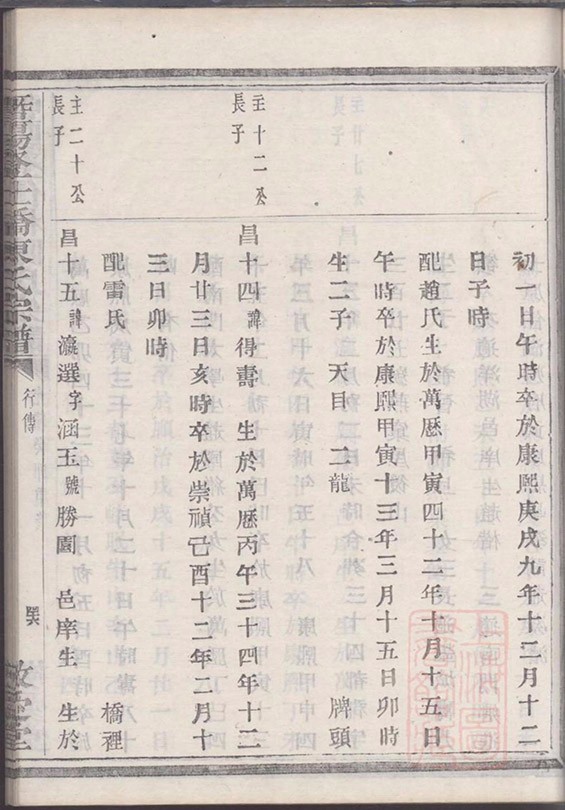 初一日午時卒於康熙庚戌九年十二月十二
日子時
配趙氏生於萬歷甲寅四十二年十月十五日
午時卒於康熙甲寅十三年三月十五日卯時
生二子 天目 二龍 牌頭
主十二公長子
昌十四諱得壽 生於萬歷丙午三十四年十二
月廿三日亥時卒於崇禎己酉十二年二月十
三日卯時
配雷氏 橋裡
主二十公長子
昌十五諱瀛選字涵玉號勝園 邑庠生 生於
暨陽 橋陳氏宗譜
行傳